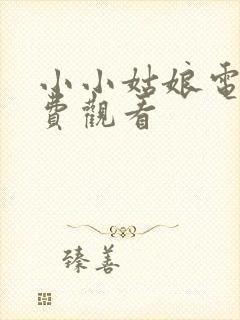 小小姑娘電
費觀看
臻善